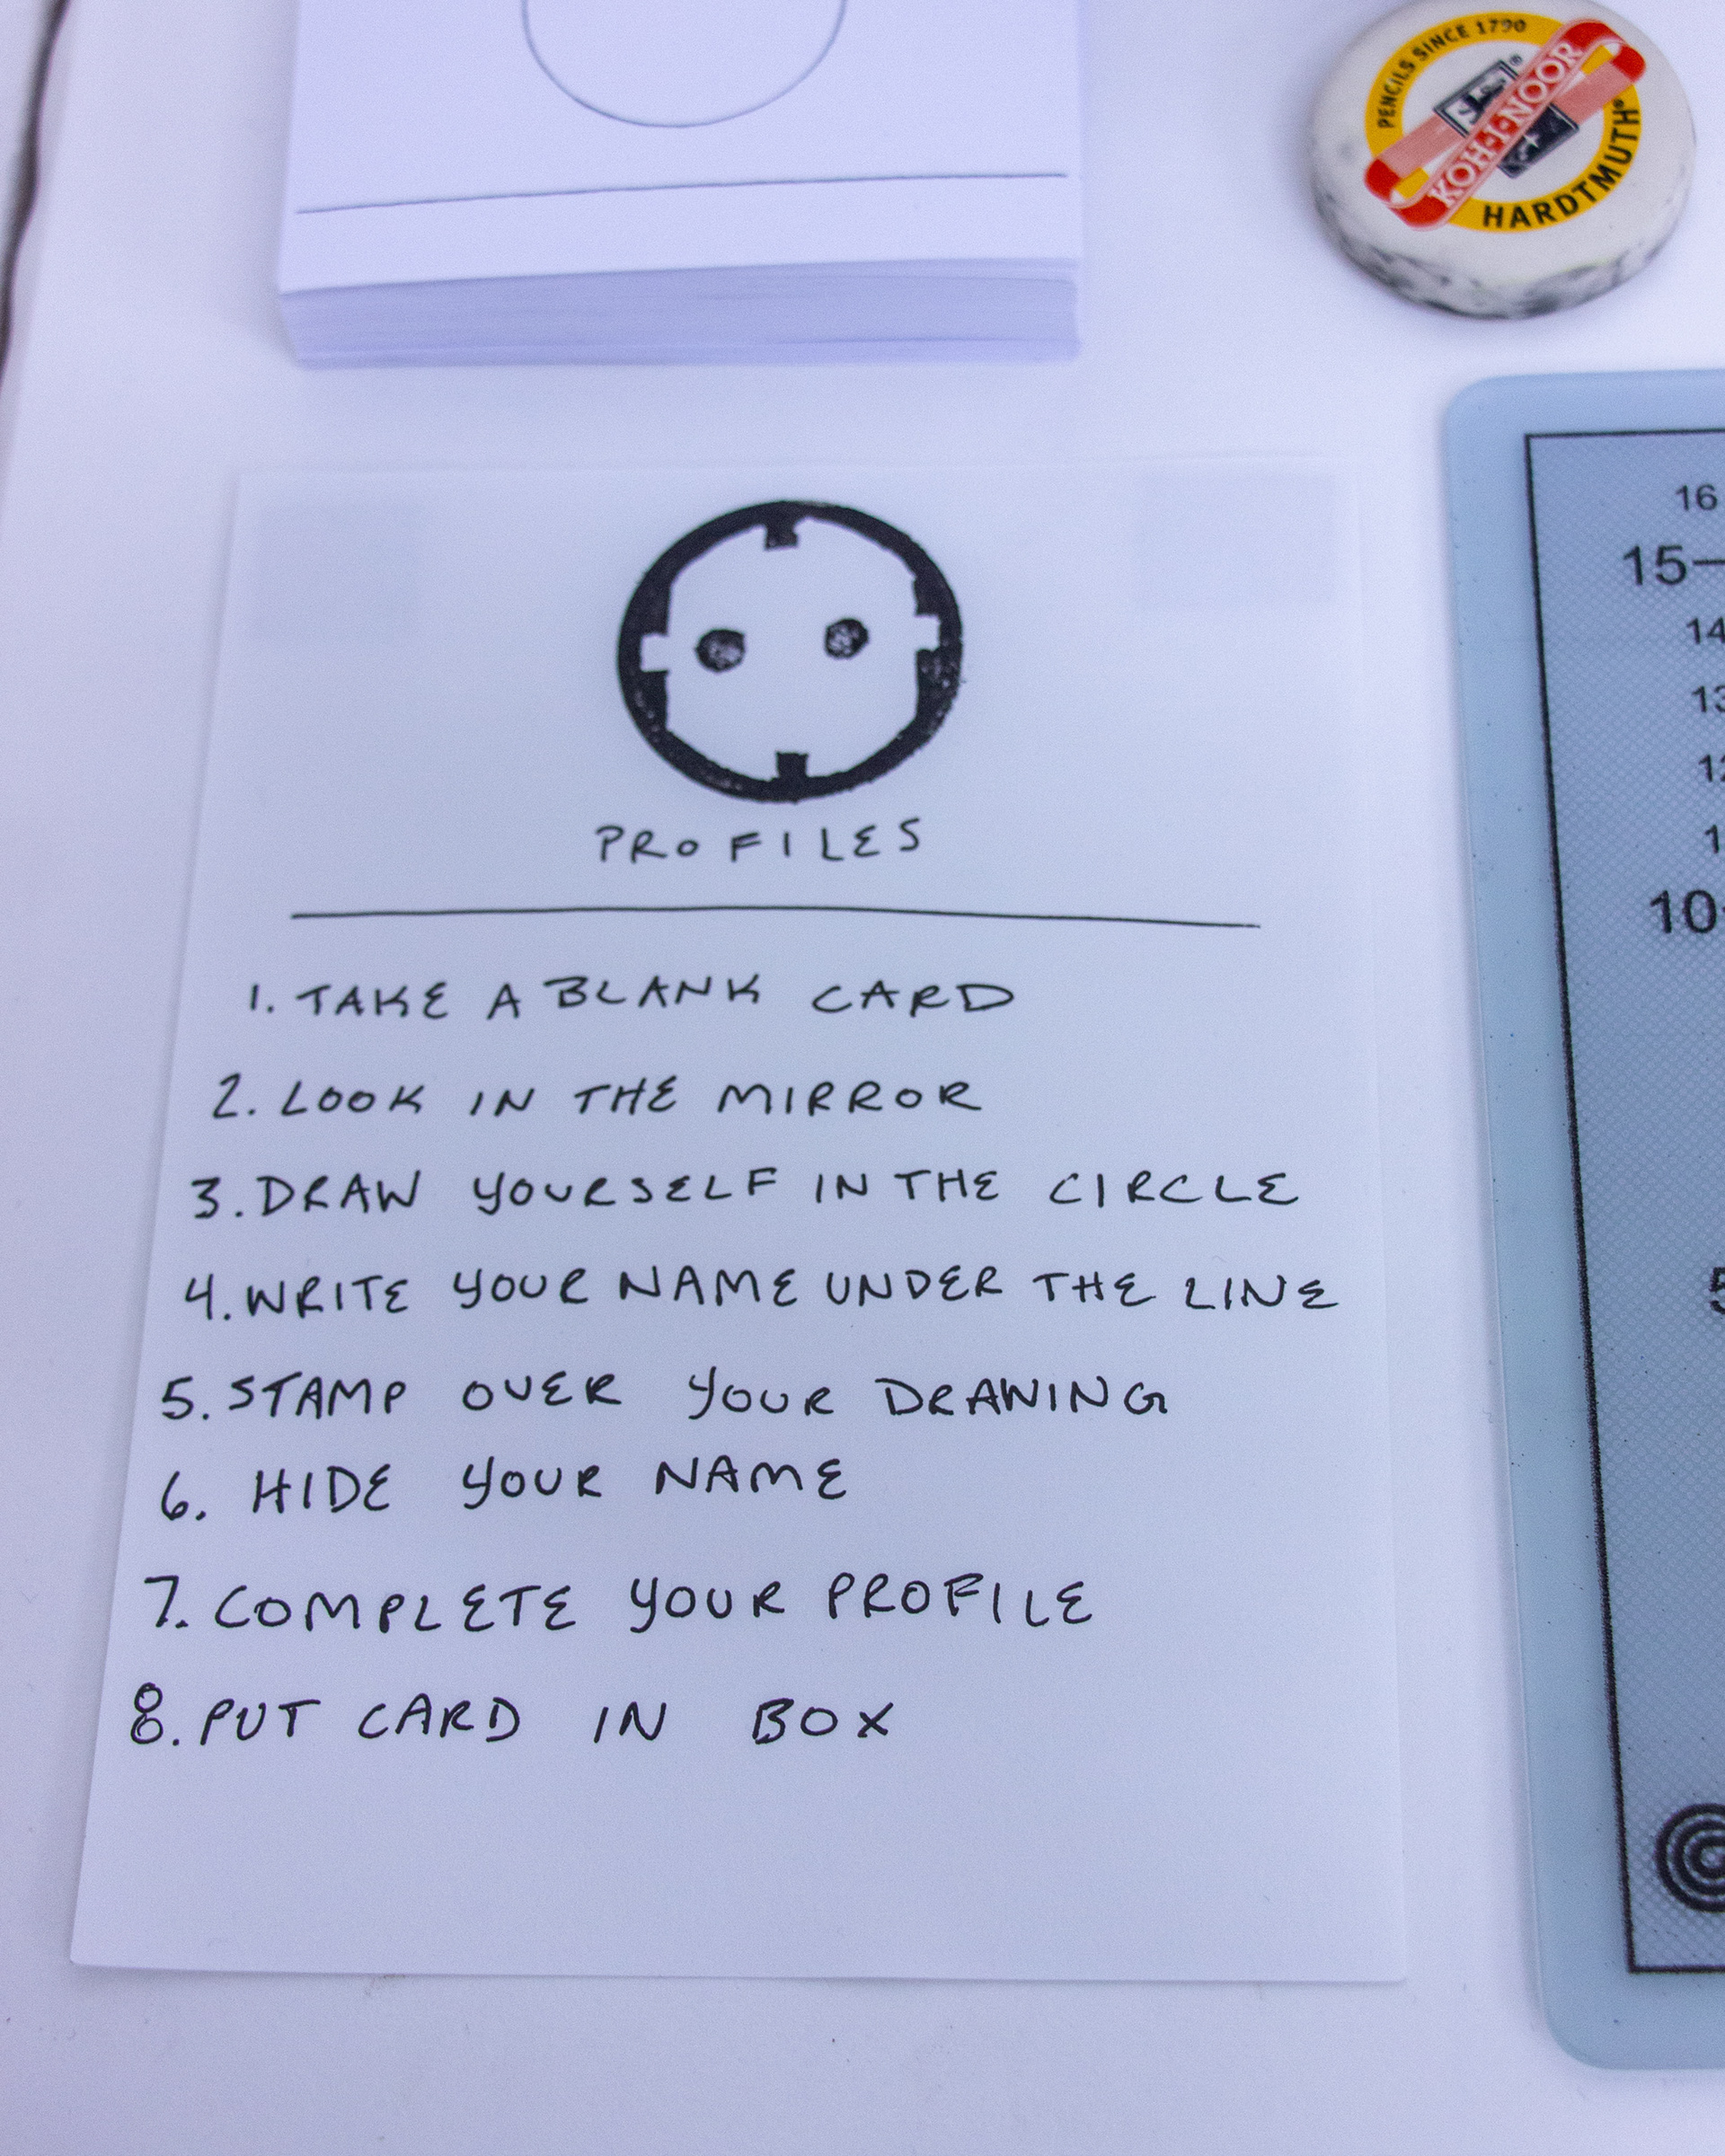 PENCILS SINCE 1790
KOH-I-NOOR
®
HARDTMUTH®
PROFILES
1. TAKE A BLANK CARD
2. LOOK IN THE MIRROR
3. DRAW YOURSELF IN THE CIRCLE
4. WRITE YOUR NAME UNDER THE LINE
5. STAMP OVER YOUR DRAWING
6. HIDE YOUR NAME
7. COMPLETE YOUR PROFILE
8. PUT CARD IN BOX
16
15
14
13
10
5